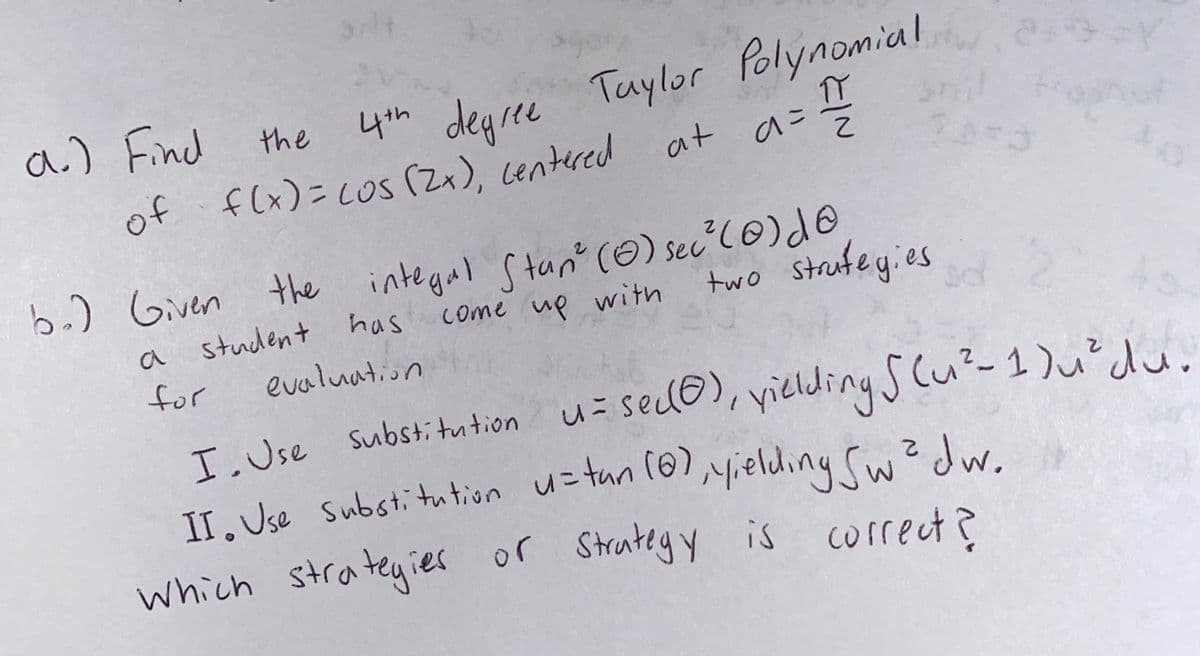 a.) Find the 4th degree Taylor Polynomial
of f(x) = cos (2x), centered at a = π/2
b.) Given the integal ∫tan²(θ) sec²(θ)dθ
a student has come up with two strategies
for evaluation
I. Use substitution u = sec(θ), yielding ∫(u²-1)u²du.
II. Use substitution u=tan(θ), yielding ∫w²dw.
which strategies or strategy is correct?